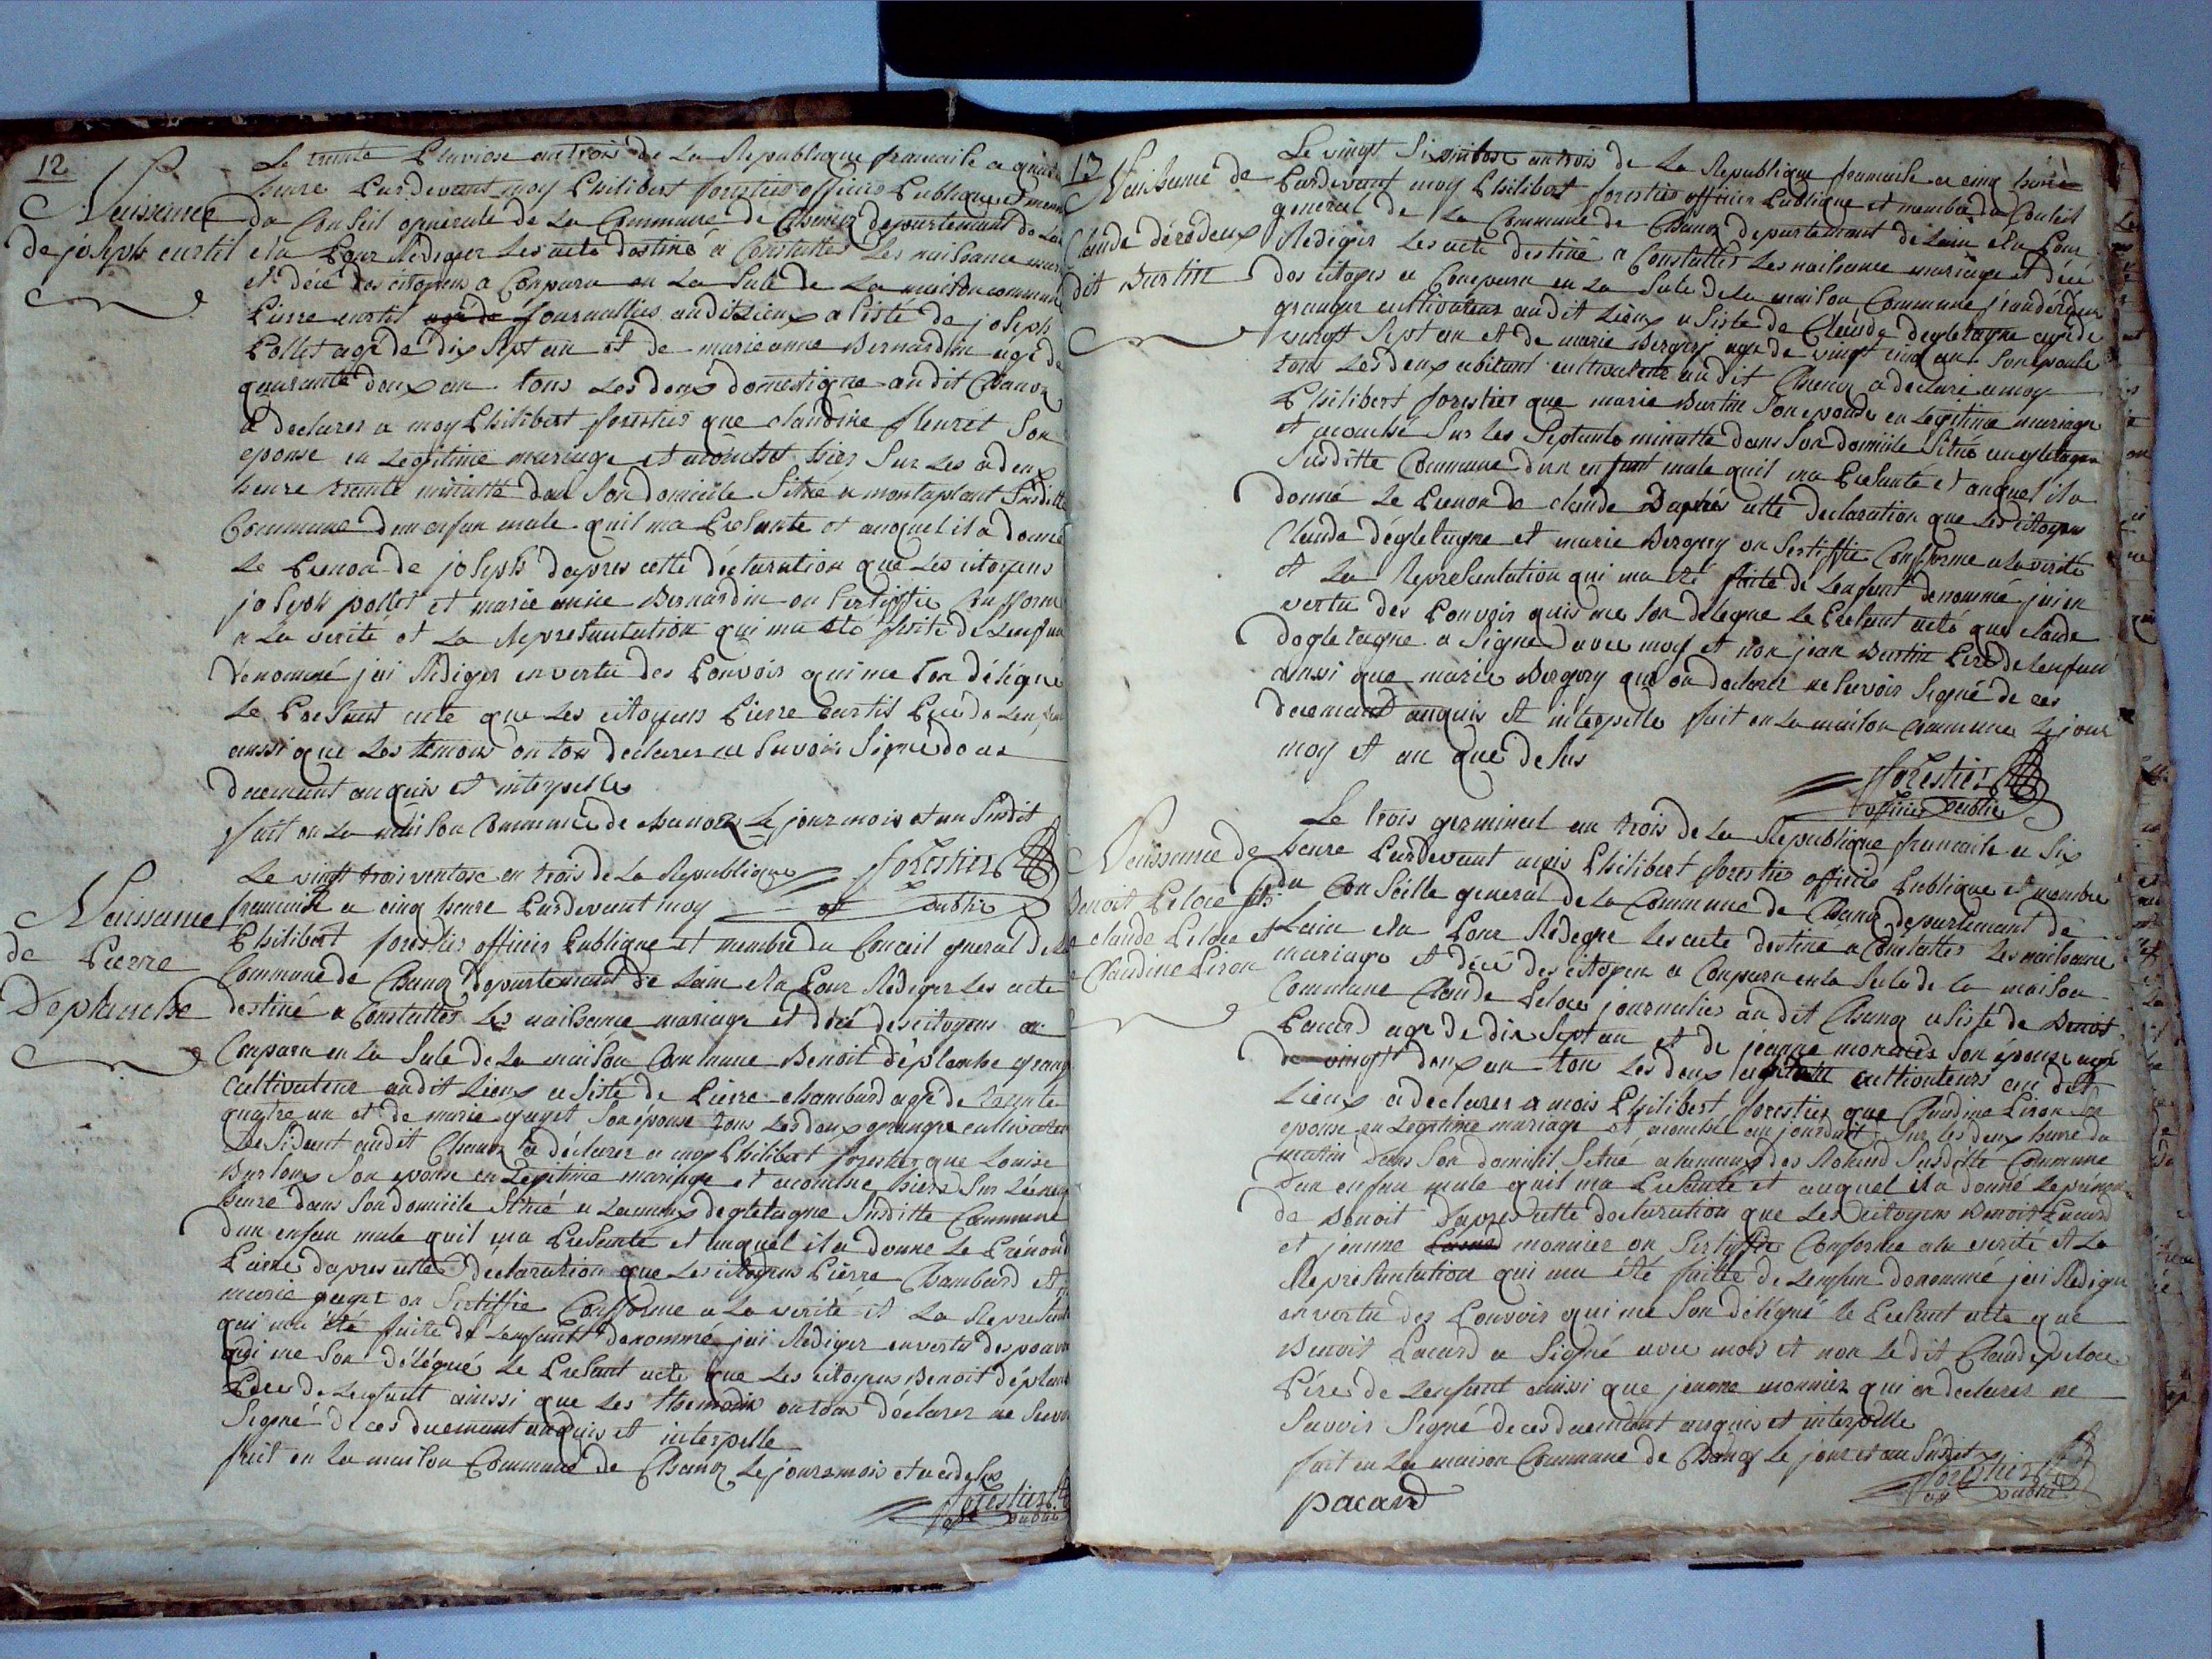 12
Naissance
de joseph curtil
Le trente Pluviose an trois de La Republique francaise a quatre
heure Pardevant moy Philibert forestier officier Publique et membre
du Conseil generale de La Commune de Chanoz departement de Lain
elu Pour Rediger Les acte destiné a Constatter Les naissance
et décé des citoyens a Conparu en La Sale de La maison commune
Pierre curtil journallier audit Lieux asisté de joseph
Pollet agé de dix Sept an et de marie anne Bernardin agé de
quarante deux an tous Les deux domestique audit Chanoz
a declarer a moy Philibert forestier que claudine fleuret Son
epouse en Legitime mariage et acouché hier Sur Les a deux
heure trente minutte dans Son domicile Situé a montaplant Susditte
Commune dun enfan male quil ma Presanté et auquel il a donné
Le Prenon de joseph dapres cette déclaration que Les citoyens
joseph pollet et marie anne Bernardin on Sertiffie Conforme
a La verité et La Representation qui ma été faite de Lenfan
denommé jai Rediger en vertu des Pouvoir qui me Son délégué
Le Presant acte que Les citoyens Pierre Curtil Pere de Lenfan
aussi que Les temoins on tous declarer ne Savoir Signé de ces
duemant auquis et interpelle
fait en La maison Commune de Chanoz Le jour mois et an Susdit
forestier
of public
Naissance
de Pierre
Déplanche
Le vingt trois ventose en trois de La Republique
francaise a cinq heure Pardevant moy
Philibert forestier officier Publique et membre du Conseil general de La
Commune de Chanoz departement de Lain elu Pour Rediger Les acte
destiné a Constatter Les naissance mariage et décé des citoyens a
Conparu en La Sale de La maison Commune Benoit déplanche grang
Cultivateur audit Lieux asiste de Pierre chambard agé de trente
quatre an et de marie guyet Son épouse tous Les deux grangre cultivateur
Residant audit Chanoz a déclarer a moy Philibert forestier que Louise
Son epouse en Legitime mariage et acouché hier Sur Lé neuf
heure dans Son domicile Situé a Lamaux degletagne Susditte Commune
dun enfan male quil ma Presanté et auquel il a donne Le Prénon
Pierre dapres cette declaration que Les citoyens Pierre Chambard et
marie guyet on Sertiffie Conforme a La verité et La Represent
qui ma été faite de Lenfant denommé jai Rediger en vertu des pouvoir
qui me Son délégué Le Presant acte que Les citoyens Benoit déplanch
Pere de Lenfant ainssi que Les themoin on tous déclarer ne Savoir
Signé de ces duemant auquis et intérpelle
fait en La maison Commune de Chanoz Le jour mois et an de Sus
forestier
of public
13
Naissance de
Claude dérodeux
dit Burtin
Le vingt Si ventose an trois de La Republique francaise a cinq heure
Pardevant moy Philibert forestier officier Publique et membre du Conseil
general de La Commune de Chanoz departement de Lain elu Pour
Rediger Les acte destiné a Constatter Les naissance mariage et décé
des citoyens a Conparu en La Sale de La maison Commune jean dérodeux
granger cultivateur audit Lieux asiste de Claude degletagne agé de
vingt Sept an et de marie Bergery agé de vingt cinq an Son epouse
tous Les deux abitant cultivateur audit Chanoz a declaré a moy
Philibert forestier que marie Burtin Son epouse en Legitime mariage
et acouché Sur Les Septante minutte dans Son domicile Situé en egletagne
Susditte Commune dun enfant male quil ma Presanté et auquel il a
donné Le Prenon de claude Daprés cette declaration que Les citoyens
Claude dégletagne et marie Bergery on Sertiffie Conforme a La verité
et La Representation qui ma été faite de Lenfant denommé jai en
vertu des Pouvoir quis me Son delegue Le Presant acté que claude
degletagne a Signé avec moy et non jean Burtin Pere de Lenfan
ainssi que marie Bergery qui on declarer ne Savoir Signé de ces
duemant auquis et interpelle fait en La maison Commune Le jour
moy et an que de Sus
forestier
officier public
Naissance de
Benoit Peloce fils
de claude Peloce et
de Claudine Piron
Le trois germinal an trois de La Republique francaise a Six
heure Pardevant mois Philibert forestier officier Publique et membre
du Conseille general de La Commune de Chanoz departement de
Lain elu Pour Redegre Les acte destiné a Constatter Les naissance
mariage et décé des citoyen a Conparu en La Sale de La maison
Commune Claude Peloce journalier audit Chanoz asisté de Benoit
Pacard agé de dix Sept an et de jeanne monnier Son épouse agé
de vingt deux an tous Les deux cultivateurs au dit
Lieux a declarer a mois Philibert forestier que Claudine Piron Sa
epouse en Legitime mariage et acouché au jourduit Sur les deux heure du
mattin dans Son domicil Situé a Lamaux des Roland Susditte Commune
dun enfan male quil ma Presanté et auquel il a donné Le prenon
de Benoit Dapres cette declaration que Les citoyens Benoit Pacard
et jeanne monnier on Sertiffie Conforme a La verité et La
Representation qui ma été faitte de Lenfan denommé jai Rediger
en vertu des Pouvoir qui me Son délégué Le Presant acte que
Benoit Pacard a Signé avec mois et non Le dit Claude peloce
Pére de Lenfant ainssi que jeanne monnier qui on declarer ne
Savoir Signé de ces duemant auquis et interpelle
fait en La maison Commune de Chanoz Le jour et an Susdit
forestier
of public
pacard